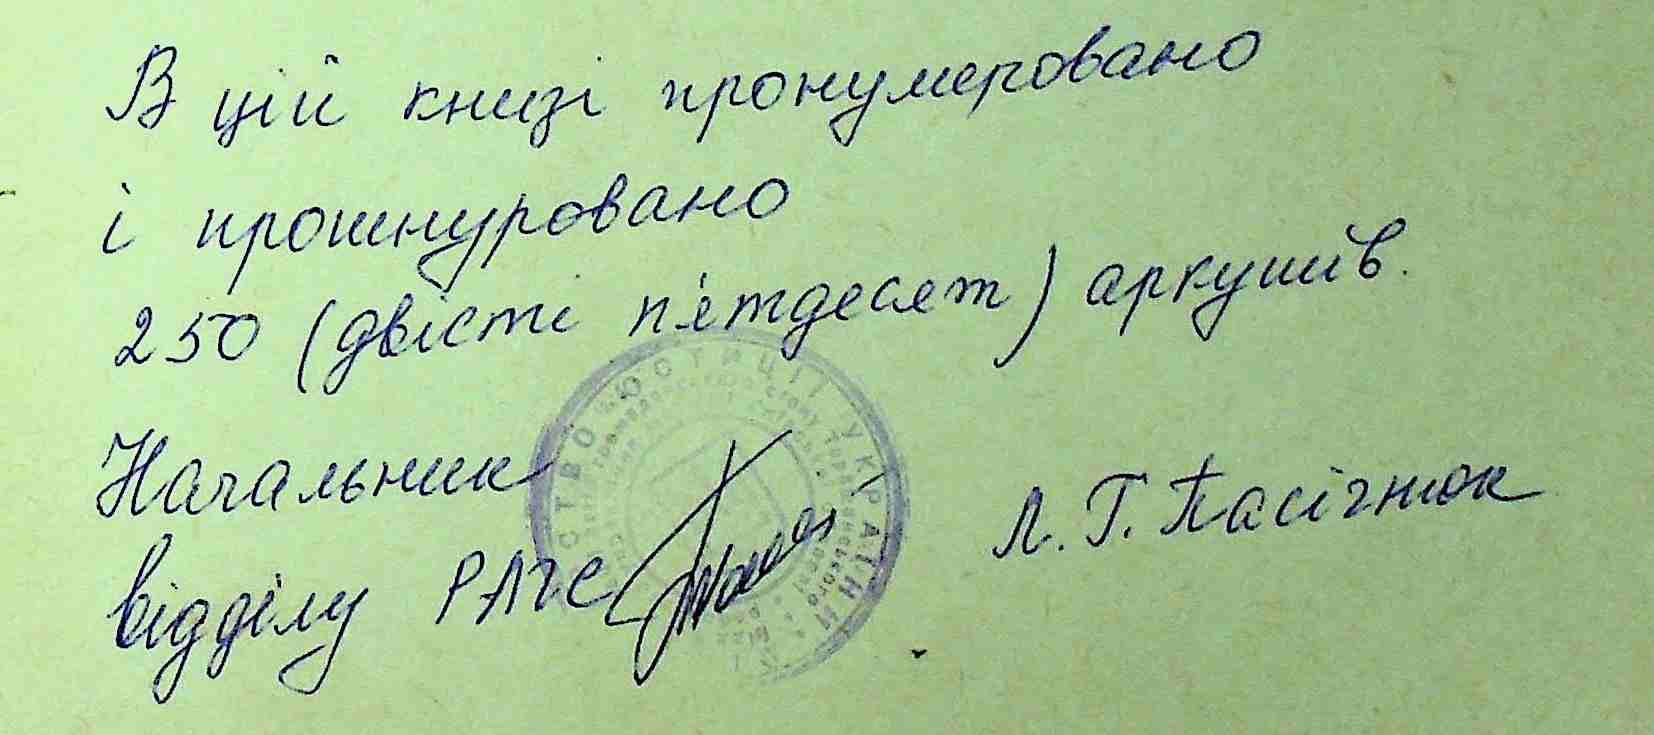 В цій книзі пронумеровано
і прошнуровано
250 (двісті п'ятдесят) аркушів.
Начальник
відділу РАГС Л. Г. Пасічнюк
ЮСТИЦІЇ УКРАЇНИ